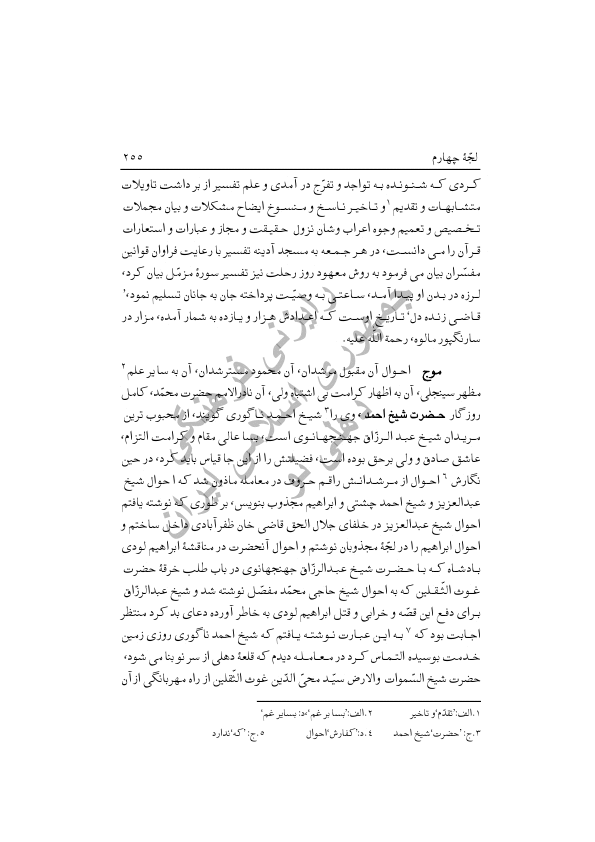 لجّۀ چهارم ۲۵۵
کردی که شنونده به تواجد و تفرّج در آمدی و علم تفسیر از بر داشت تاویلات
متشابهات و تقدیم ۱و تاخیر ناسخ و منسوخ ایضاح مشکلات و بیان مجملات
تخصیص و تعمیم وجوه اعراب وشان نزول حقیقت و مجاز و عبارات و استعارات
قرآن را می دانست، در هر جمعه به مسجد آدینه تفسیر با رعایت فراوان قوانین
مفسّران بیان می فرمود به روش معهود روز رحلت نیز تفسیر سورۀ مزمّل بیان کرد،
لرزه در بدن او پیدا آمد، ساعتی به وصیّت پرداخته جان به جانان تسلیم نمود،'
قاضی زنده دل' تاریخ اوست که اعدادش هزار و یازده به شمار آمده، مزار در
سارنگپور مالوه، رحمة اللّه علیه.
موج احوال آن مقبول مرشدان، آن محمود مسترشدان، آن به سایر علم۲
مظهر سینجلی، آن به اظهار کرامت بی اشتباه ولی، آن نادرالامم حضرت محمّد، کامل
روزگار حضرت شیخ احمد، وی را۳ شیخ احمد ناگوری گویند، از محبوب ترین
مریدان شیخ عبد الرزّاق جهنجهانوی است، بسا عالی مقام و کرامت التزام،
عاشق صادق و ولی برحق بوده است، فضیلتش را از این جا قیاس باید کرد، در حین
نگارش ۶ احوال از مرشدانش راقم حروف در معامله ماذون شد که ا حوال شیخ
عبدالعزیز و شیخ احمد چشتی و ابراهیم مجذوب بنویس، بر طوری که نوشته یافتم
احوال شیخ عبدالعزیز در خلفای جلال الحق قاضی خان ظفرآبادی داخل ساختم و
احوال ابراهیم را در لجّۀ مجذوبان نوشتم و احوال آنحضرت در مناقشۀ ابراهیم لودی
بادشاه که با حضرت شیخ عبدالرزّاق جهنجهانوی در باب طلب خرقۀ حضرت
غوث الثّقلین که به احوال شیخ حاجی محمّد مفصّل نوشته شد و شیخ عبدالرزّاق
برای دفع این قصّه و خرابی و قتل ابراهیم لودی به خاطر آورده دعای بد کرد منتظر
اجابت بود که ۷ به این عبارت نوشته یافتم که شیخ احمد ناگوری روزی زمین
خدمت بوسیده التماس کرد در معامله دیدم که قلعۀ دهلی از سر نو بنا می شود،
حضرت شیخ السّموات والارض سیّد محیّ الدّین غوث الثّقلین از راه مهربانگی از آن
۱.الف:'تقدّم'و تاخیر ۲.الف:'بسا بر غم'،د: بسایر غم'
۳.ج: 'حضرت'شیخ احمد ۴.د:'کفارش'احوال ۵.ج:'که'ندارد